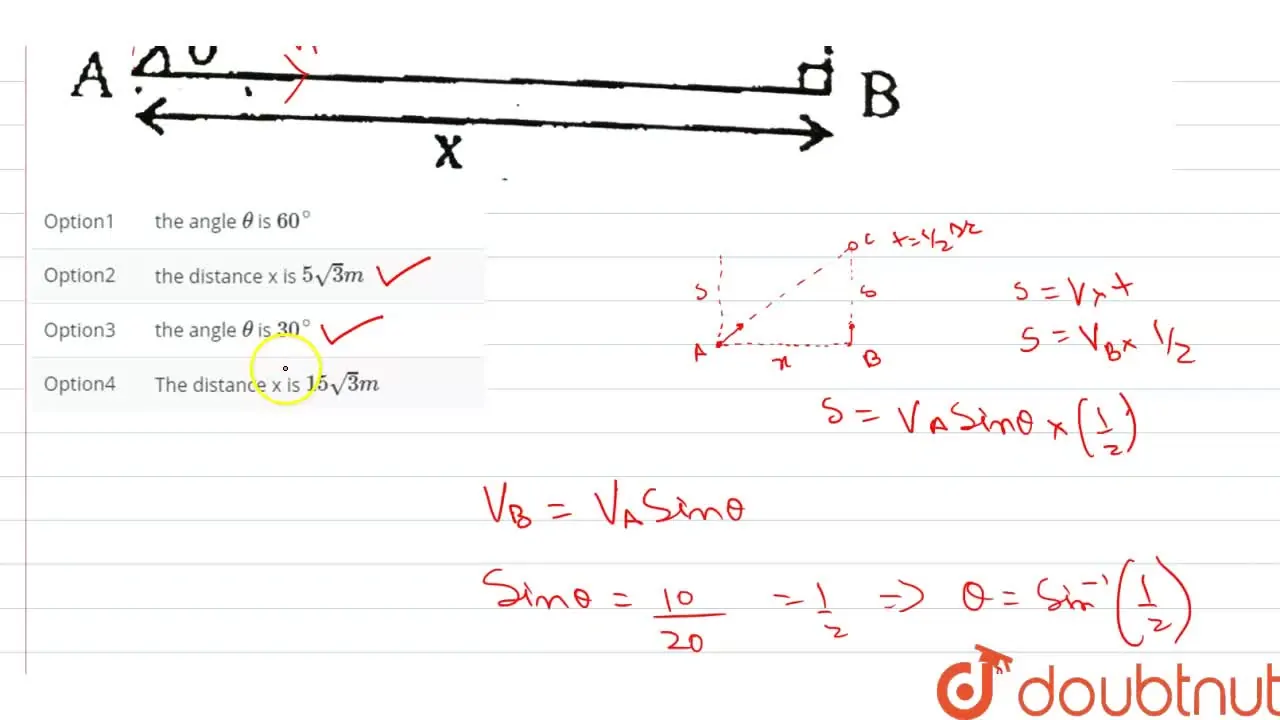 A θ B
X
Option1 the angle θ is 60°
Option2 the distance x is 5√3m
Option3 the angle θ is 30°
Option4 The distance x is 15√3m
C t=1/2 sec
S S
A x B
S = V×t
S = V_B × 1/2
S = V_A Sinθ × (1/2)
V_B = V_A Sinθ
Sinθ = 10/20 = 1/2 => θ = Sin⁻¹(1/2)
doubtnut